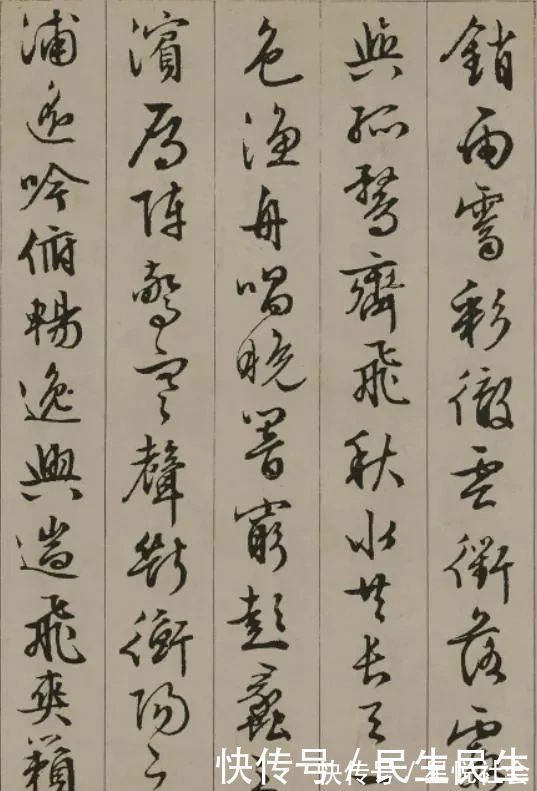 銷雨霽彩徹雲衢落霞
與孤鶩齊飛秋水共長天一
色漁舟唱晚響窮彭蠡
濱雁陣驚寒聲斷衡陽之
浦遙吟俯暢逸興遄飛爽籟
快传号/民生民生
快传号/